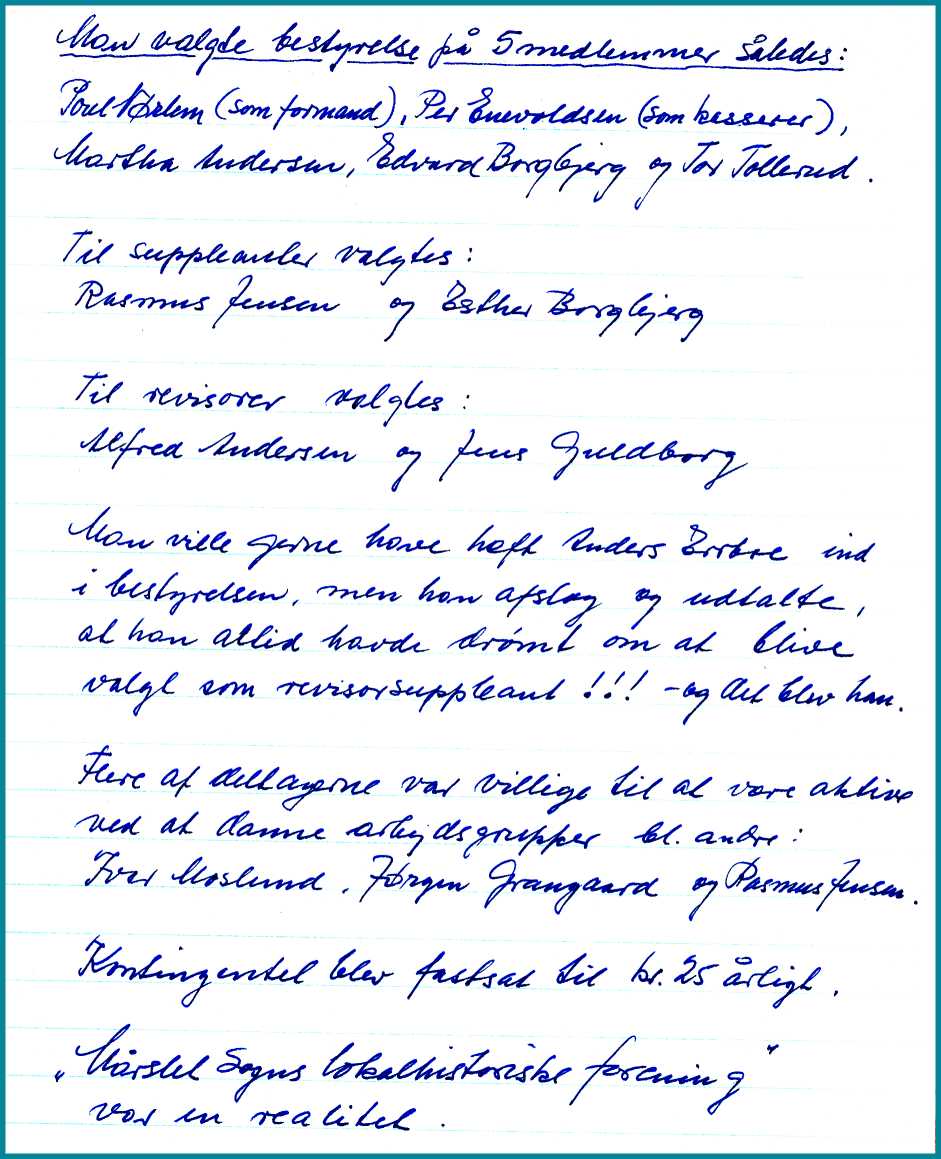 Man valgte bestyrelse på 5 medlemmer således:
Poul Nørlem (som formand), Per Enevoldsen (som kasserer),
Martha Andersen, Edvard Borgbjerg og Tor Tollerud.
Til suppleanter valgtes:
Rasmus Jensen og Esther Borgbjerg
Til revisorer valgtes:
Alfred Andersen og Jens Guldborg
Man ville gerne have haft Anders Errboe ind
i bestyrelsen, men han afslog og udtalte,
at han altid havde drømt om at blive
valgt som revisorsuppleant!!! - og det blev han.
Flere af deltagerne var villige til at være aktive
ved at danne arbejdsgrupper bl. andre:
Ivar Moslund, Jørgen Grangaard og Rasmus Jensen.
Kontingentet blev fastsat til kr. 25 årligt.
„Mårslet Sogns lokalhistoriske forening"
var en realitet.